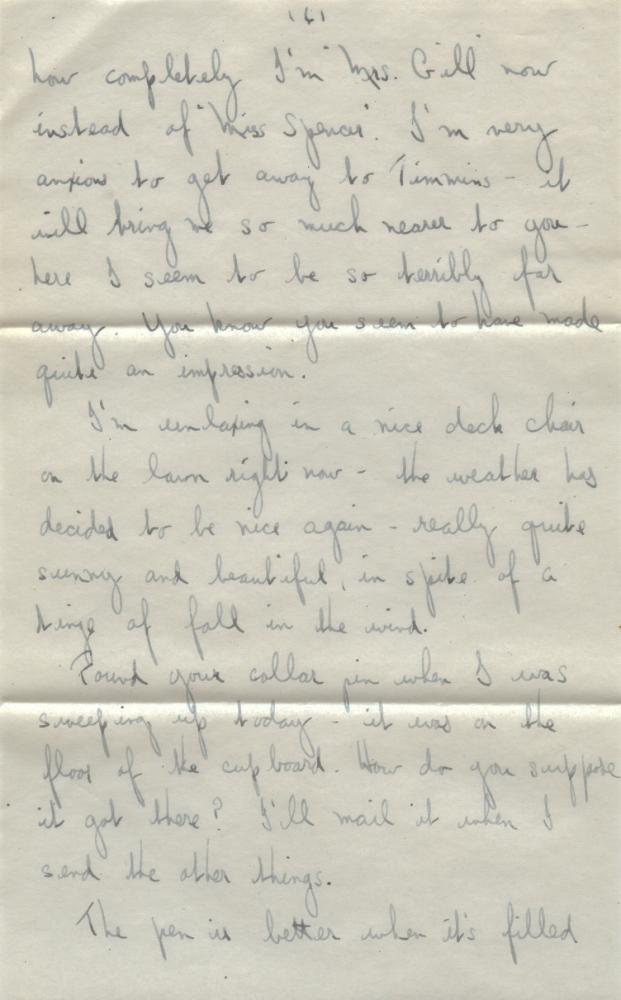 (6)
how completely I'm "Mrs. Gill" now
instead of "Miss Spencer". I'm very
anxious to get away to Timmins - it
will bring me so much nearer to you -
here I seem to be so terribly far
away. You know you seem to have made
quite an impression.
I'm unlaxing in a nice deck chair
on the lawn right now - the weather has
decided to be nice again - really quite
sunny and beautiful, in spite of a
tinge of fall in the wind.
Found your collar pin when I was
sweeping up today - it was on the
floor of the cupboard. How do you suppose
it got there? I'll mail it when I
send the other things.
The pen is better when it's filled